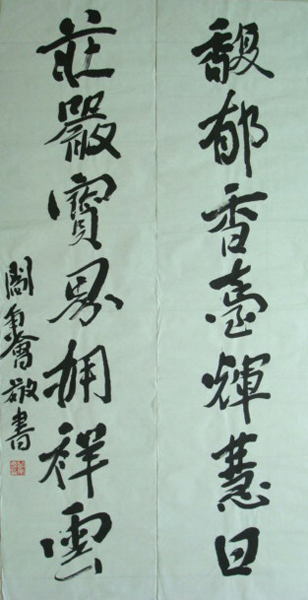 馥郁香臺輝慧日
莊嚴寶界拥祥雲
閻秉會敬書